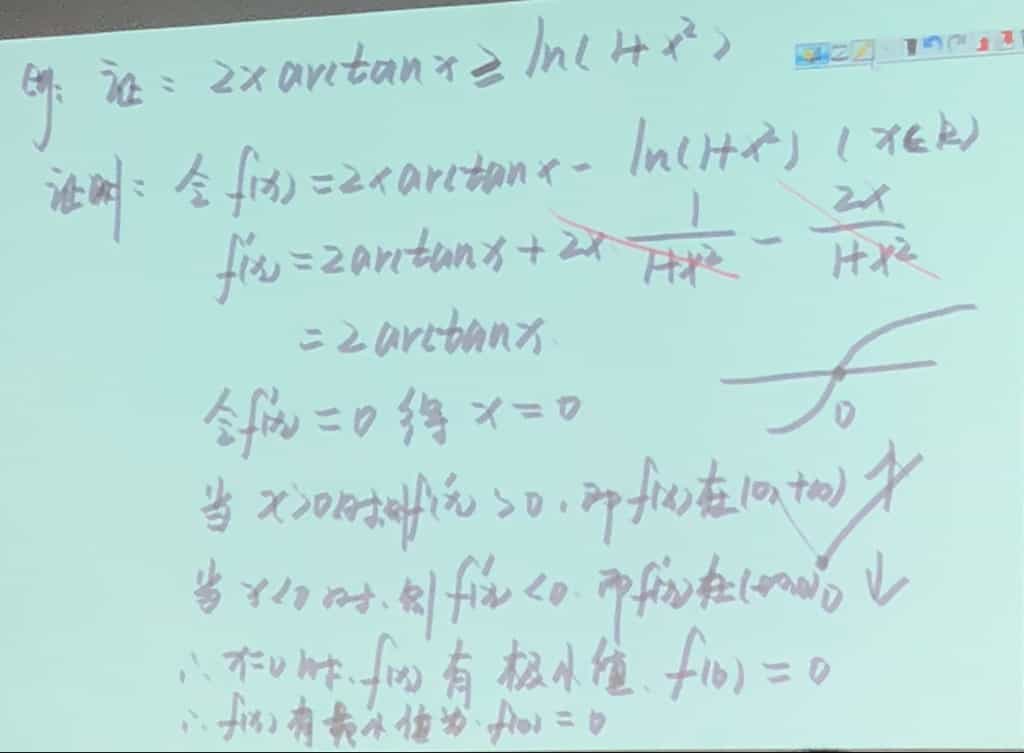 例: 证: 2x arctan x ≥ ln(1+x²)
证明: 令 f(x) = 2x arctan x - ln(1+x²) (x∈R)
f'(x) = 2arctan x + 2x 1/(1+x²) - 2x/(1+x²)
= 2arctan x.
令f'(x) = 0 得 x = 0
0
当 x>0时, 则f'(x) >0. 即 f(x) 在(0,+∞) ↑
当 x<0 时. 则 f'(x) <0. 即f(x)在(-∞,0) ↓
∴ x=0 时. f(x) 有 极小值. f(0) = 0
∴ f(x) 有最小值为. f(0) = 0